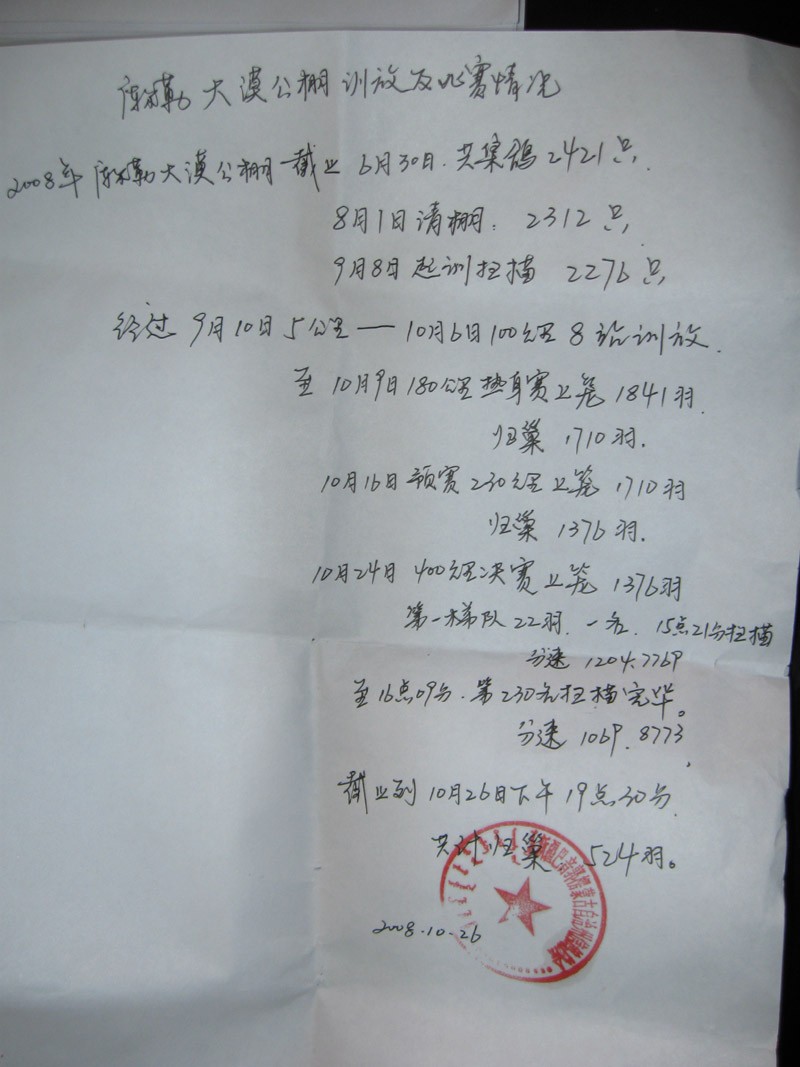 库尔勒大漠公棚训放及比赛情况
2008年库尔勒大漠公棚截止6月30日.共集鸽2421只.
8月1日请棚: 2312只,
9月8日起训扫描 2276只,
经过9月10日5公里——10月6日100公里8站训放.
至10月9日180公里热身赛上笼1841羽.
归巢1710羽.
10月16日预赛230公里上笼1710羽
归巢1376羽.
10月24日400公里决赛上笼1376羽
第一梯队22羽.一名.15点21分扫描
分速1204.7769
至16点09分.第230名扫描完毕。
分速1069.8773,
截止到10月26日下午19点30分.
共计归巢524羽。
2008.10.26